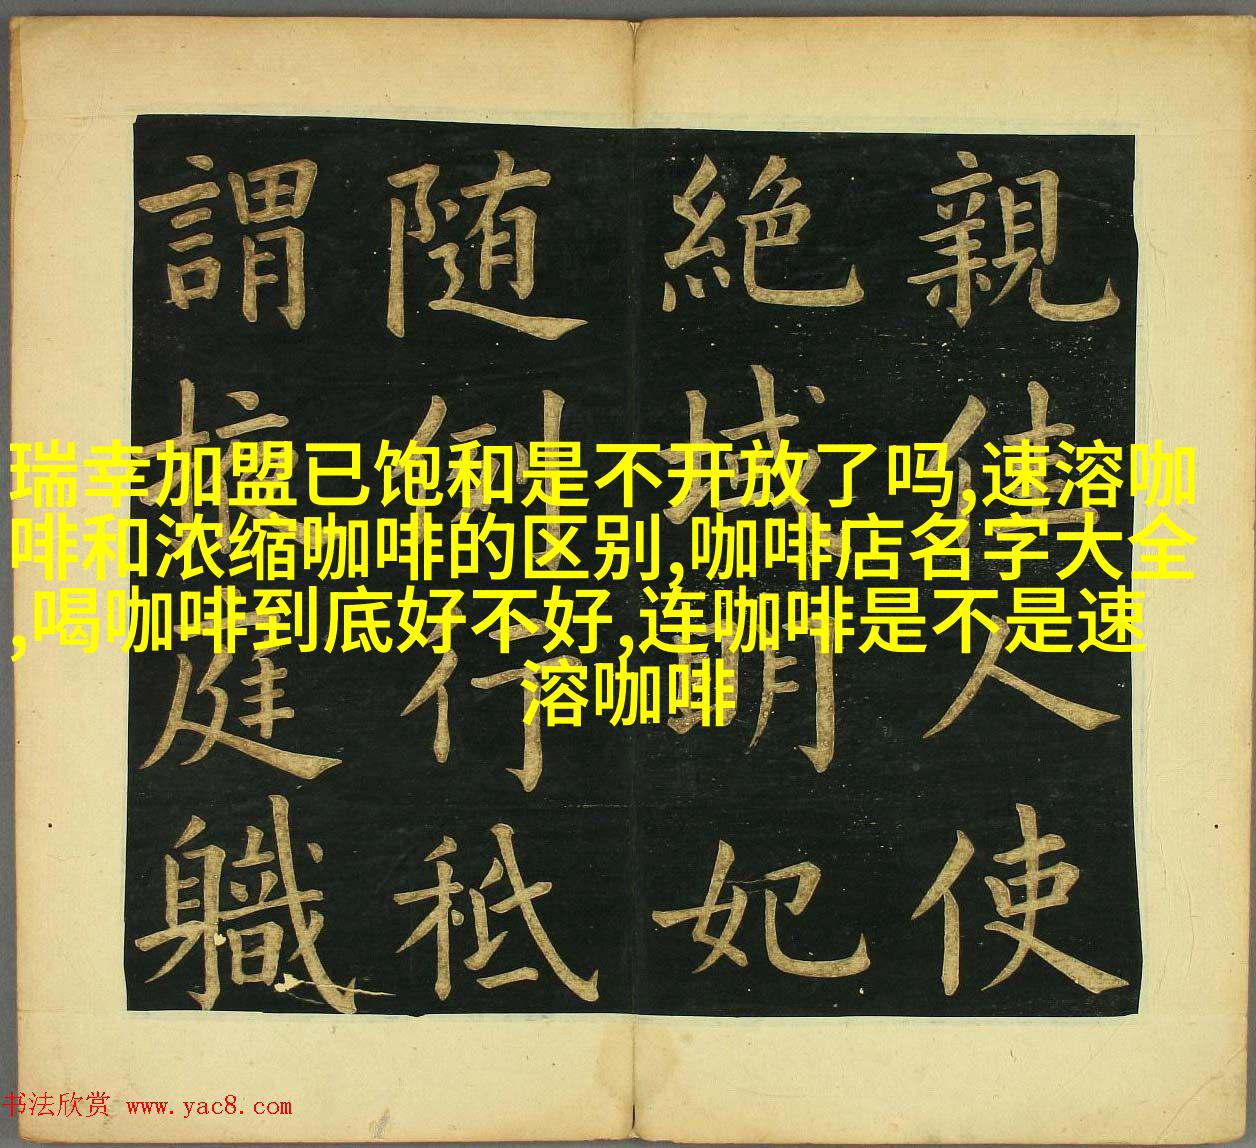 瑞幸加盟已饱和是不开放了吗,速溶咖
啡和浓缩咖啡的区别,咖啡店名字大全
,喝咖啡到底好不好,连咖啡是不是速
溶咖啡
親人使
絶域明妃
随例行秪
謂庭軄
书法欣赏 www.yac8.com